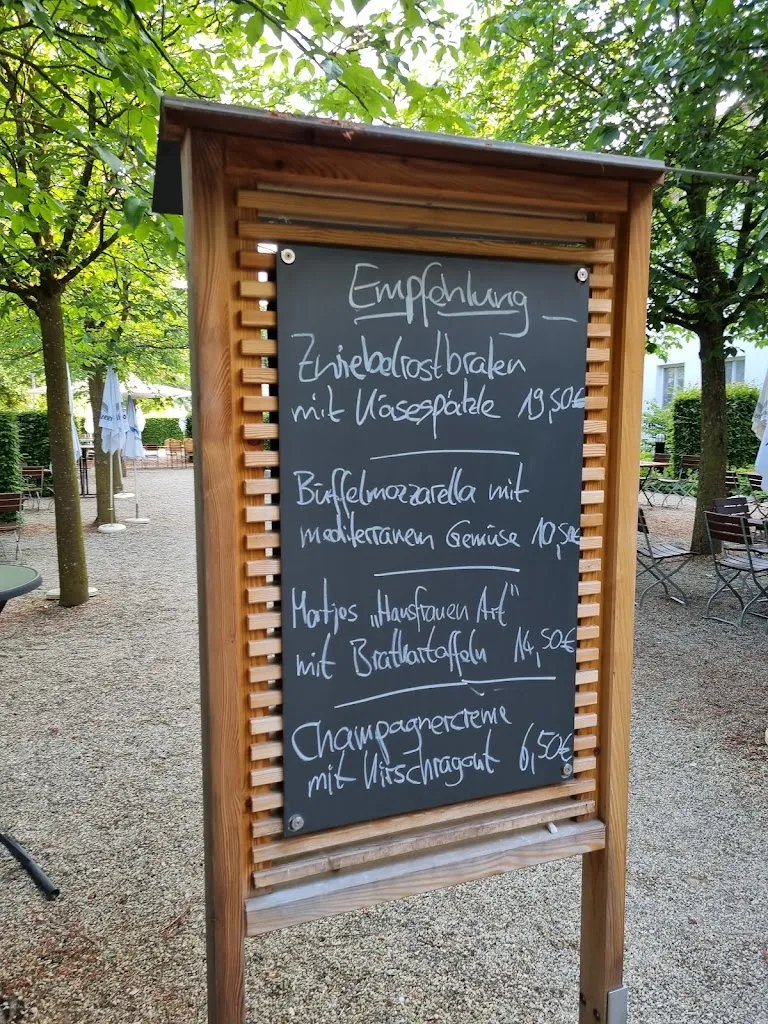 Empfehlung
Zwiebelrostbraten
mit Käsespätzle 19,50€
Büffelmozzarella mit
mediterranem Gemüse 10,50€
Matjes „Hausfrauen Art"
mit Bratkartoffeln 14,50€
Champagnercreme
mit Kirschragout 6,50€